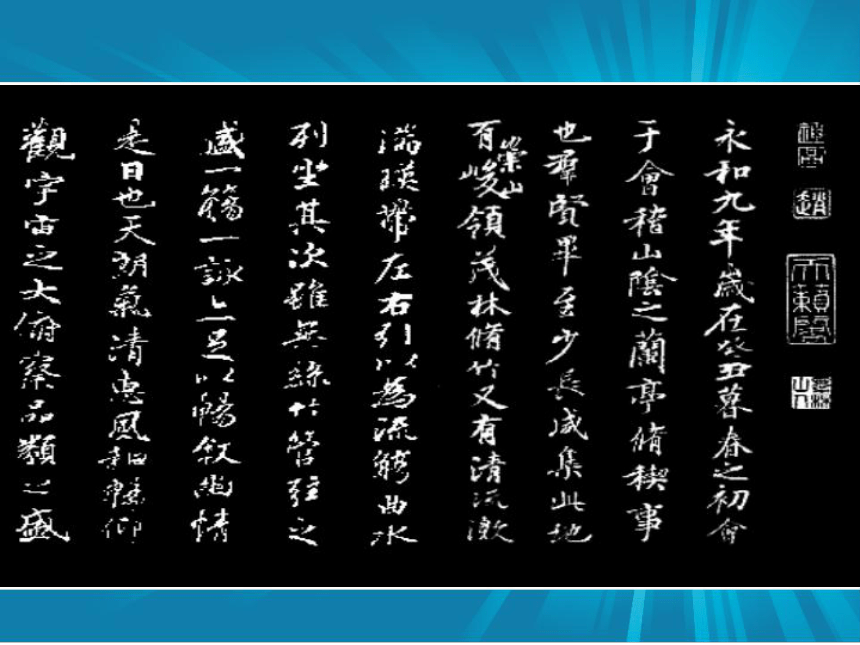 天籟閣
永和九年歲在癸丑暮春之初會
于會稽山陰之蘭亭脩稧事
也羣賢畢至少長咸集此地
有崇山峻領茂林脩竹又有清流激
湍暎帶左右引以為流觴曲水
列坐其次雖無絲竹管弦之
盛一觴一詠亦足以暢敘幽情
是日也天朗氣清惠風和暢仰
觀宇宙之大俯察品類之盛